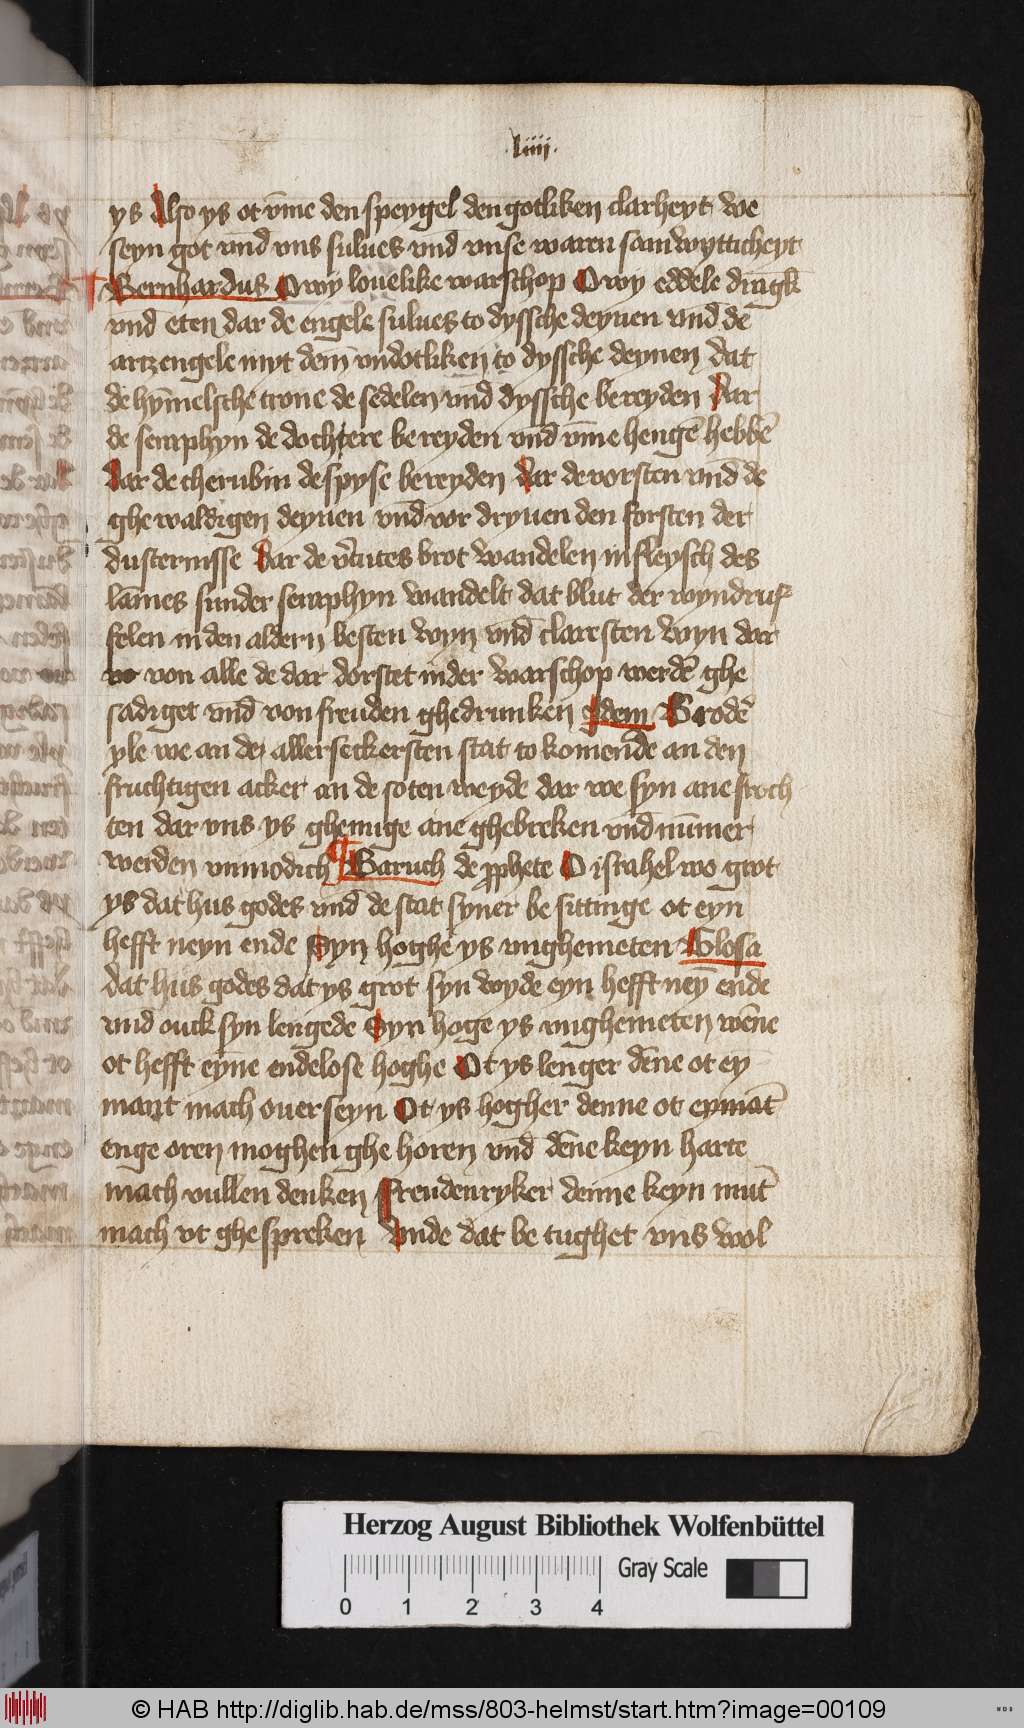 ·liiij·
ys Also ys ot v̄me den speygel den gotliken clarheyt we
seyn got vnd̄ vns sulues vnd̄ vnse waren sam wytticheyt
Bernhardus Owy louelike warschop Owy eddele dragk
vnd̄ eten dar de engele sulues to dyssche deynen vnd̄ de
artzengele myt dem̄ vndotliken to dyssche deynen dat
de hȳmelsche trone de sedelen vnd̄ dyssche bereyden Dar
de seraphyn de dochtere bereyden vnd̄ v̄me hengē hebbē
Dar de cherubin de spyse bereyden Dar de vorsten vnd̄ de
ghewaldigen deynen vnd̄ vor dryuen den forsten der
dusternisse Dar de v̄tutes brot wandelen in fleysch des
lāmes sunder seraphyn wandelt dat blut der wyndruf
felen in den aldern besten wyn vnd̄ claresten wyn dar
von alle de dar dorstet in der warschop werdē ghe
sadiget vnd̄ von freuden ghedrunken Idem Brodē
yle we an de allersekersten stat to komende an den
fruchtigen acker an de soten weyde dar we syn ane froch
ten dar vns ys ghenuge ane ghebreken vnd̄ nūmer
werden vnmodich Baruch de ꝓphete O israhel wo grot
ys dat hus godes vnd̄ de stat syner besittinge ot eyn
hefft neyn ende Syn hoghe ys vnghemeten Glosa
dat hus godes dat ys grot syn wyde eyn hefft neȳ ende
vnd ouck syn lengede Syn hoge ys vnghemeten wēne
ot hefft eyne endelose hoghe Ot ys lenger dēne ot ey
mant mach ouerseyn Ot ys hogher denne ot eymāt
enge oren moghen ghehoren vnd̄ dēne keyn harte
mach vullen denken Freudenryker denne keyn mut
mach vt ghespreken Vnde dat betughet vns wol
Herzog August Bibliothek Wolfenbüttel
Gray Scale
0 1 2 3 4
© HAB http://diglib.hab.de/mss/803-helmst/start.htm?image=00109